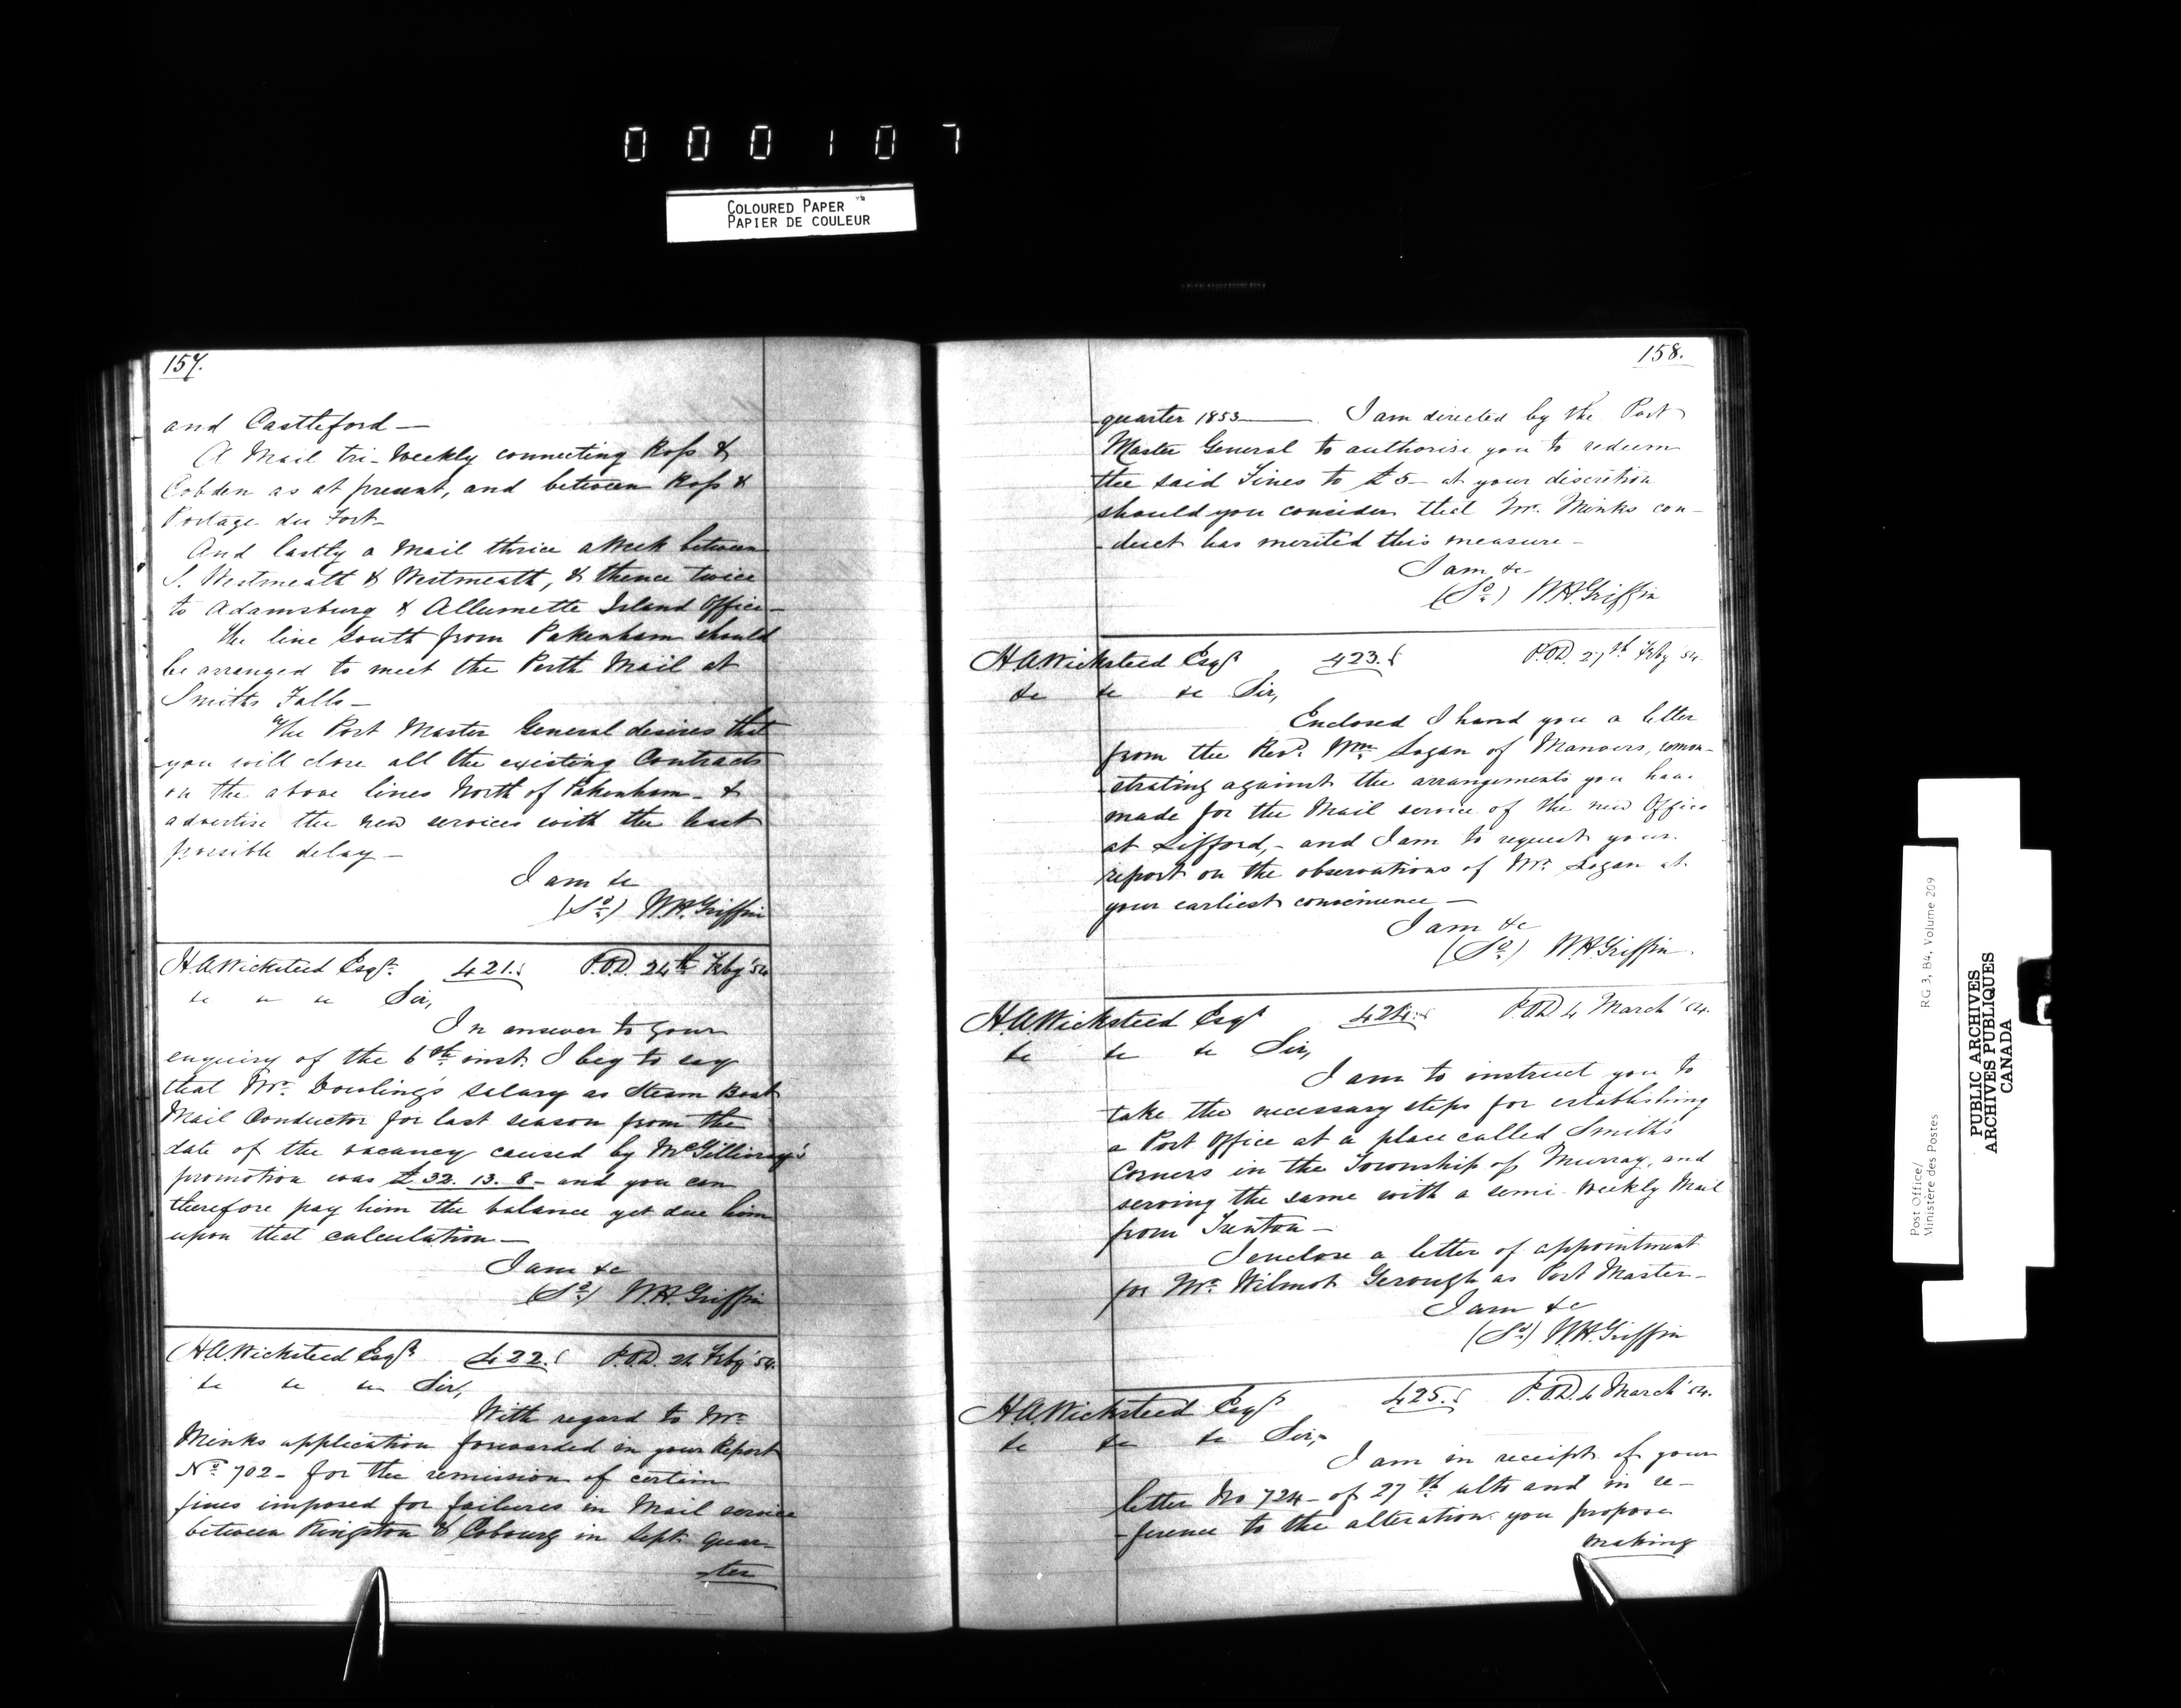 000107
COLOURED PAPER
PAPIER DE COULEUR
157.
and Castleford —
A Mail tri-Weekly connecting Ross &
Cobden as at present, and between Ross &
Portage du Fort —
And lastly a Mail thrice a Week between
S. Westmeath & Westmeath, & thence twice
to Adamsburg & Allumette Island Office —
The line South from Pakenham should
be arranged to meet the Perth Mail at
Smiths Falls —
The Post Master General desires that
you will close all the existing Contracts
on the above lines North of Pakenham — &
advertise the new services with the least
possible delay —
I am &c
(Sd.) W.H. Griffin
H.A. Wicksteed Esqr. 421. P.O.D. 24th Feby '54
&c &c &c Sir,
In answer to your
enquiry of the 6th inst. I beg to say
that Mr. Dowling's salary as Steam Boat
Mail Conductor for last season from the
date of the vacancy caused by McGillivray's
promotion was £32. 13. 8 — and you can
therefore pay him the balance yet due him
upon that calculation —
I am &c
(Sd.) W.H. Griffin
H.A. Wicksteed Esqr 422. P.O.D. Feby '54.
&c &c &c Sir,
With regard to Mr.
Minks application forwarded in your Report
No. 702 — for the remission of certain
fines imposed for failures in Mail service
between Kingston & Cobourg in Sept. quar-
-ter
158.
quarter 1853 — I am directed by the Post
Master General to authorise you to redeem
the said Fines to £5 — at your discretion
should you consider that Mr. Minks con-
-duct has merited this measure —
I am &c
(Sd.) W.H. Griffin
H.A. Wicksteed Esqr 423. P.O.D. 27th Feby '54.
&c &c &c Sir,
Enclosed I hand you a letter
from the Revd. Wm. Logan of Manvers, remon-
-strating against the arrangements you have
made for the Mail service of the new Office
at Lifford, — and I am to request your
report on the observations of Mr. Logan at
your earliest convenience —
I am &c
(Sd.) W.H. Griffin.
H.A. Wicksteed Esqr 424. P.O.D. 4 March '54.
&c &c &c Sir,
I am to instruct you to
take the necessary steps for establishing
a Post Office at a place called Smith's
Corners in the Township of Murray, and
serving the same with a semi-Weekly Mail
from Trenton —
I enclose a letter of appointment
for Mr. Wilmot as Post Master —
I am &c
(Sd.) W.H. Griffin
H.A. Wicksteed Esqr 425. P.O.D. 4 March '54.
&c &c &c Sir,
I am in receipt of your
letter No 724 — of 27th ulto and in re-
-ference to the alterations you propose
making
Post Office/
Ministère des Postes
RG 3, B4, Volume 209
PUBLIC ARCHIVES
ARCHIVES PUBLIQUES
CANADA